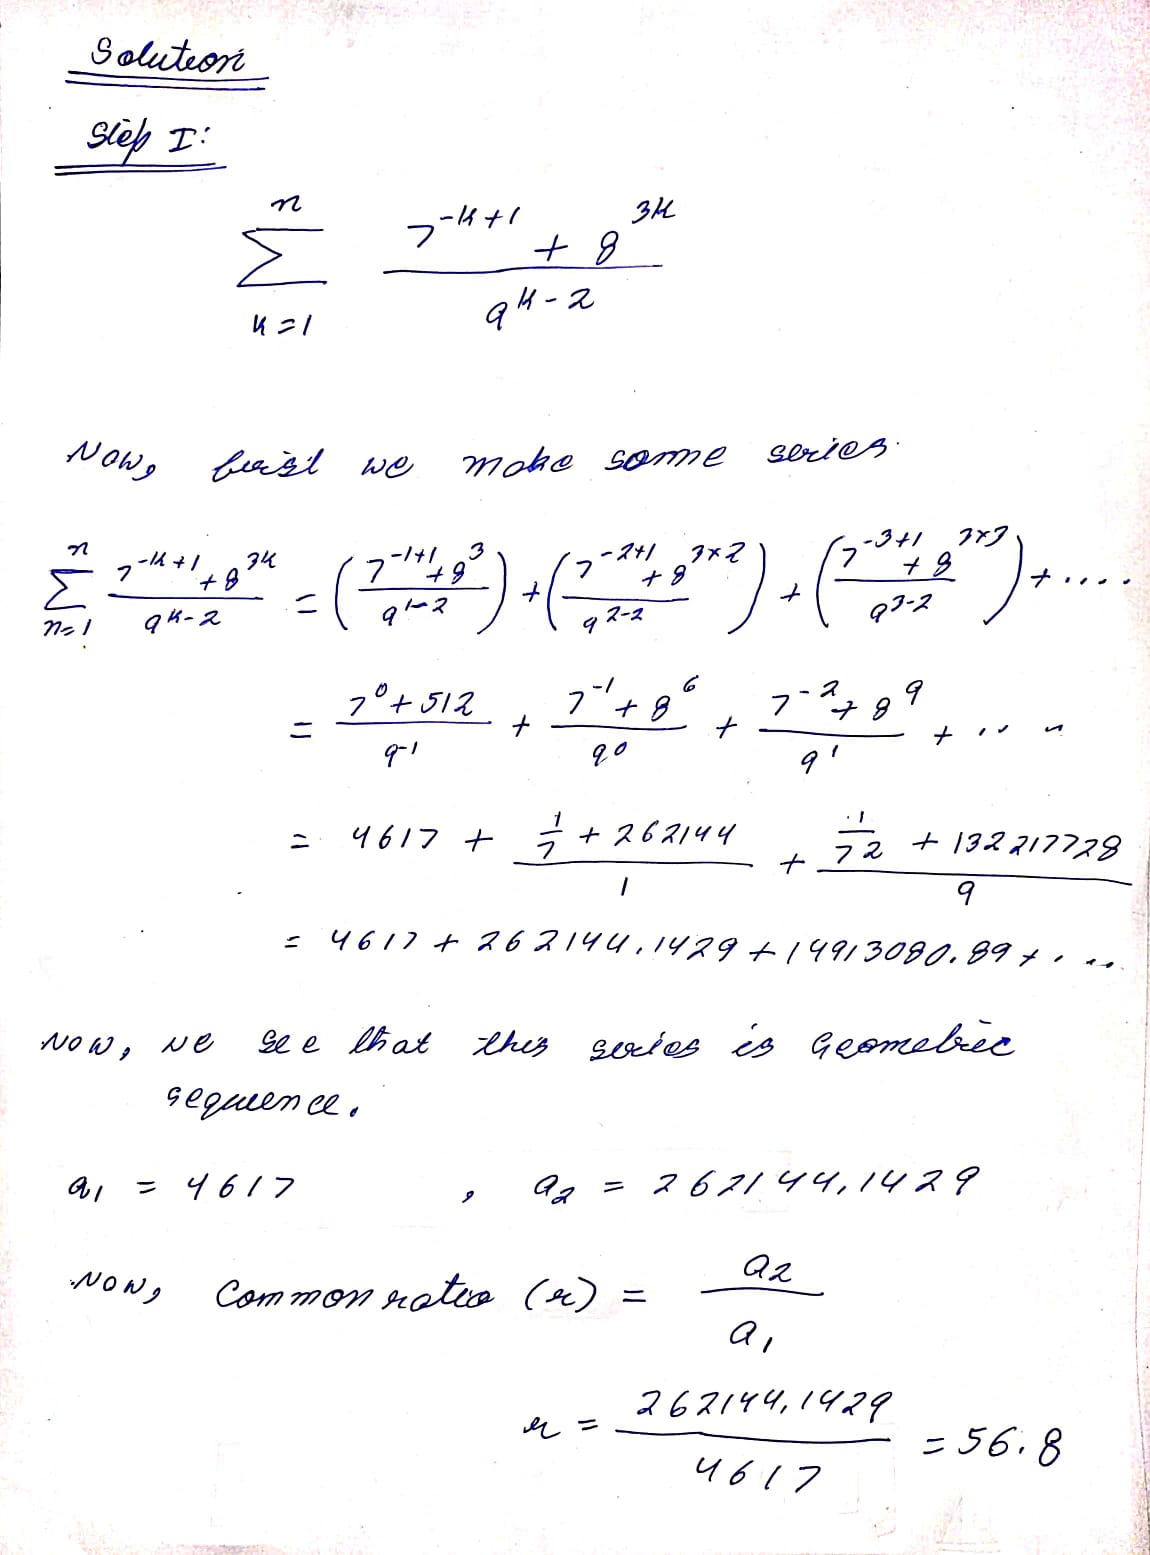 Solution
Step I:
n
∑ (7^{-k+1} + 8^{3k}) / 9^{k-2}
k=1
Now, first we make some series.
∑_{n=1}^{n} (7^{-k+1} + 8^{3k}) / 9^{k-2} = ((7^{-1+1} + 8^{3}) / 9^{1-2}) + ((7^{-2+1} + 8^{3×2}) / 9^{2-2}) + ((7^{-3+1} + 8^{3×3}) / 9^{3-2}) + ....
= (7^0 + 512) / 9^{-1} + (7^{-1} + 8^6) / 9^0 + (7^{-2} + 8^9) / 9^1 + ....
= 4617 + (1/7 + 262144) / 1 + (1/72 + 132217728) / 9
= 4617 + 262144.1429 + 14913080.89 + ....
Now, we see that this series is Geometric
sequence.
a1 = 4617 , a2 = 262144.1429
Now, Common ratio (r) = a2 / a1
r = 262144.1429 / 4617 = 56.8